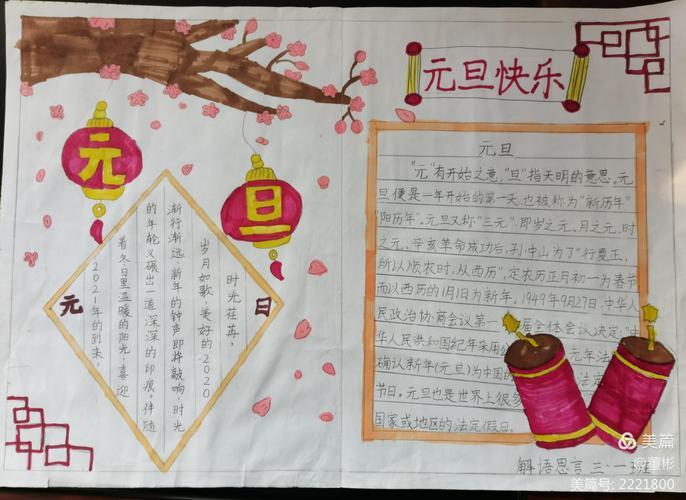 元旦快乐
元
旦
时光荏苒,
岁月如歌,美好的2020
渐行渐远,新年的钟声即将敲响,时光
的年轮又碾出一道深深的印痕,伴随
着冬日里温暖的阳光,喜迎
2021年的到来。
元
旦
元旦
"元"有开始之意,"旦"指天明的意思。元
旦便是一年开始的第一天,也被称为"新历年"
"阳历年"。元旦又称"三元",即岁之元、月之元、时
之元。辛亥革命成功后,孙中山为了"行夏正,
所以顺农时,从西历",定农历正月初一为春节
而以西历的1月1日为新年。1949年9月27日,中华人
民政治协商会议第 届全体会议决定:"中
华人民共和国纪年采用 元年法
确认新年(元旦)为中国的 法定
节日。元旦也是世界上很多
国家或地区的法定假日。
解语思言 三·一班
美篇
@董彬
美篇号: 2221800